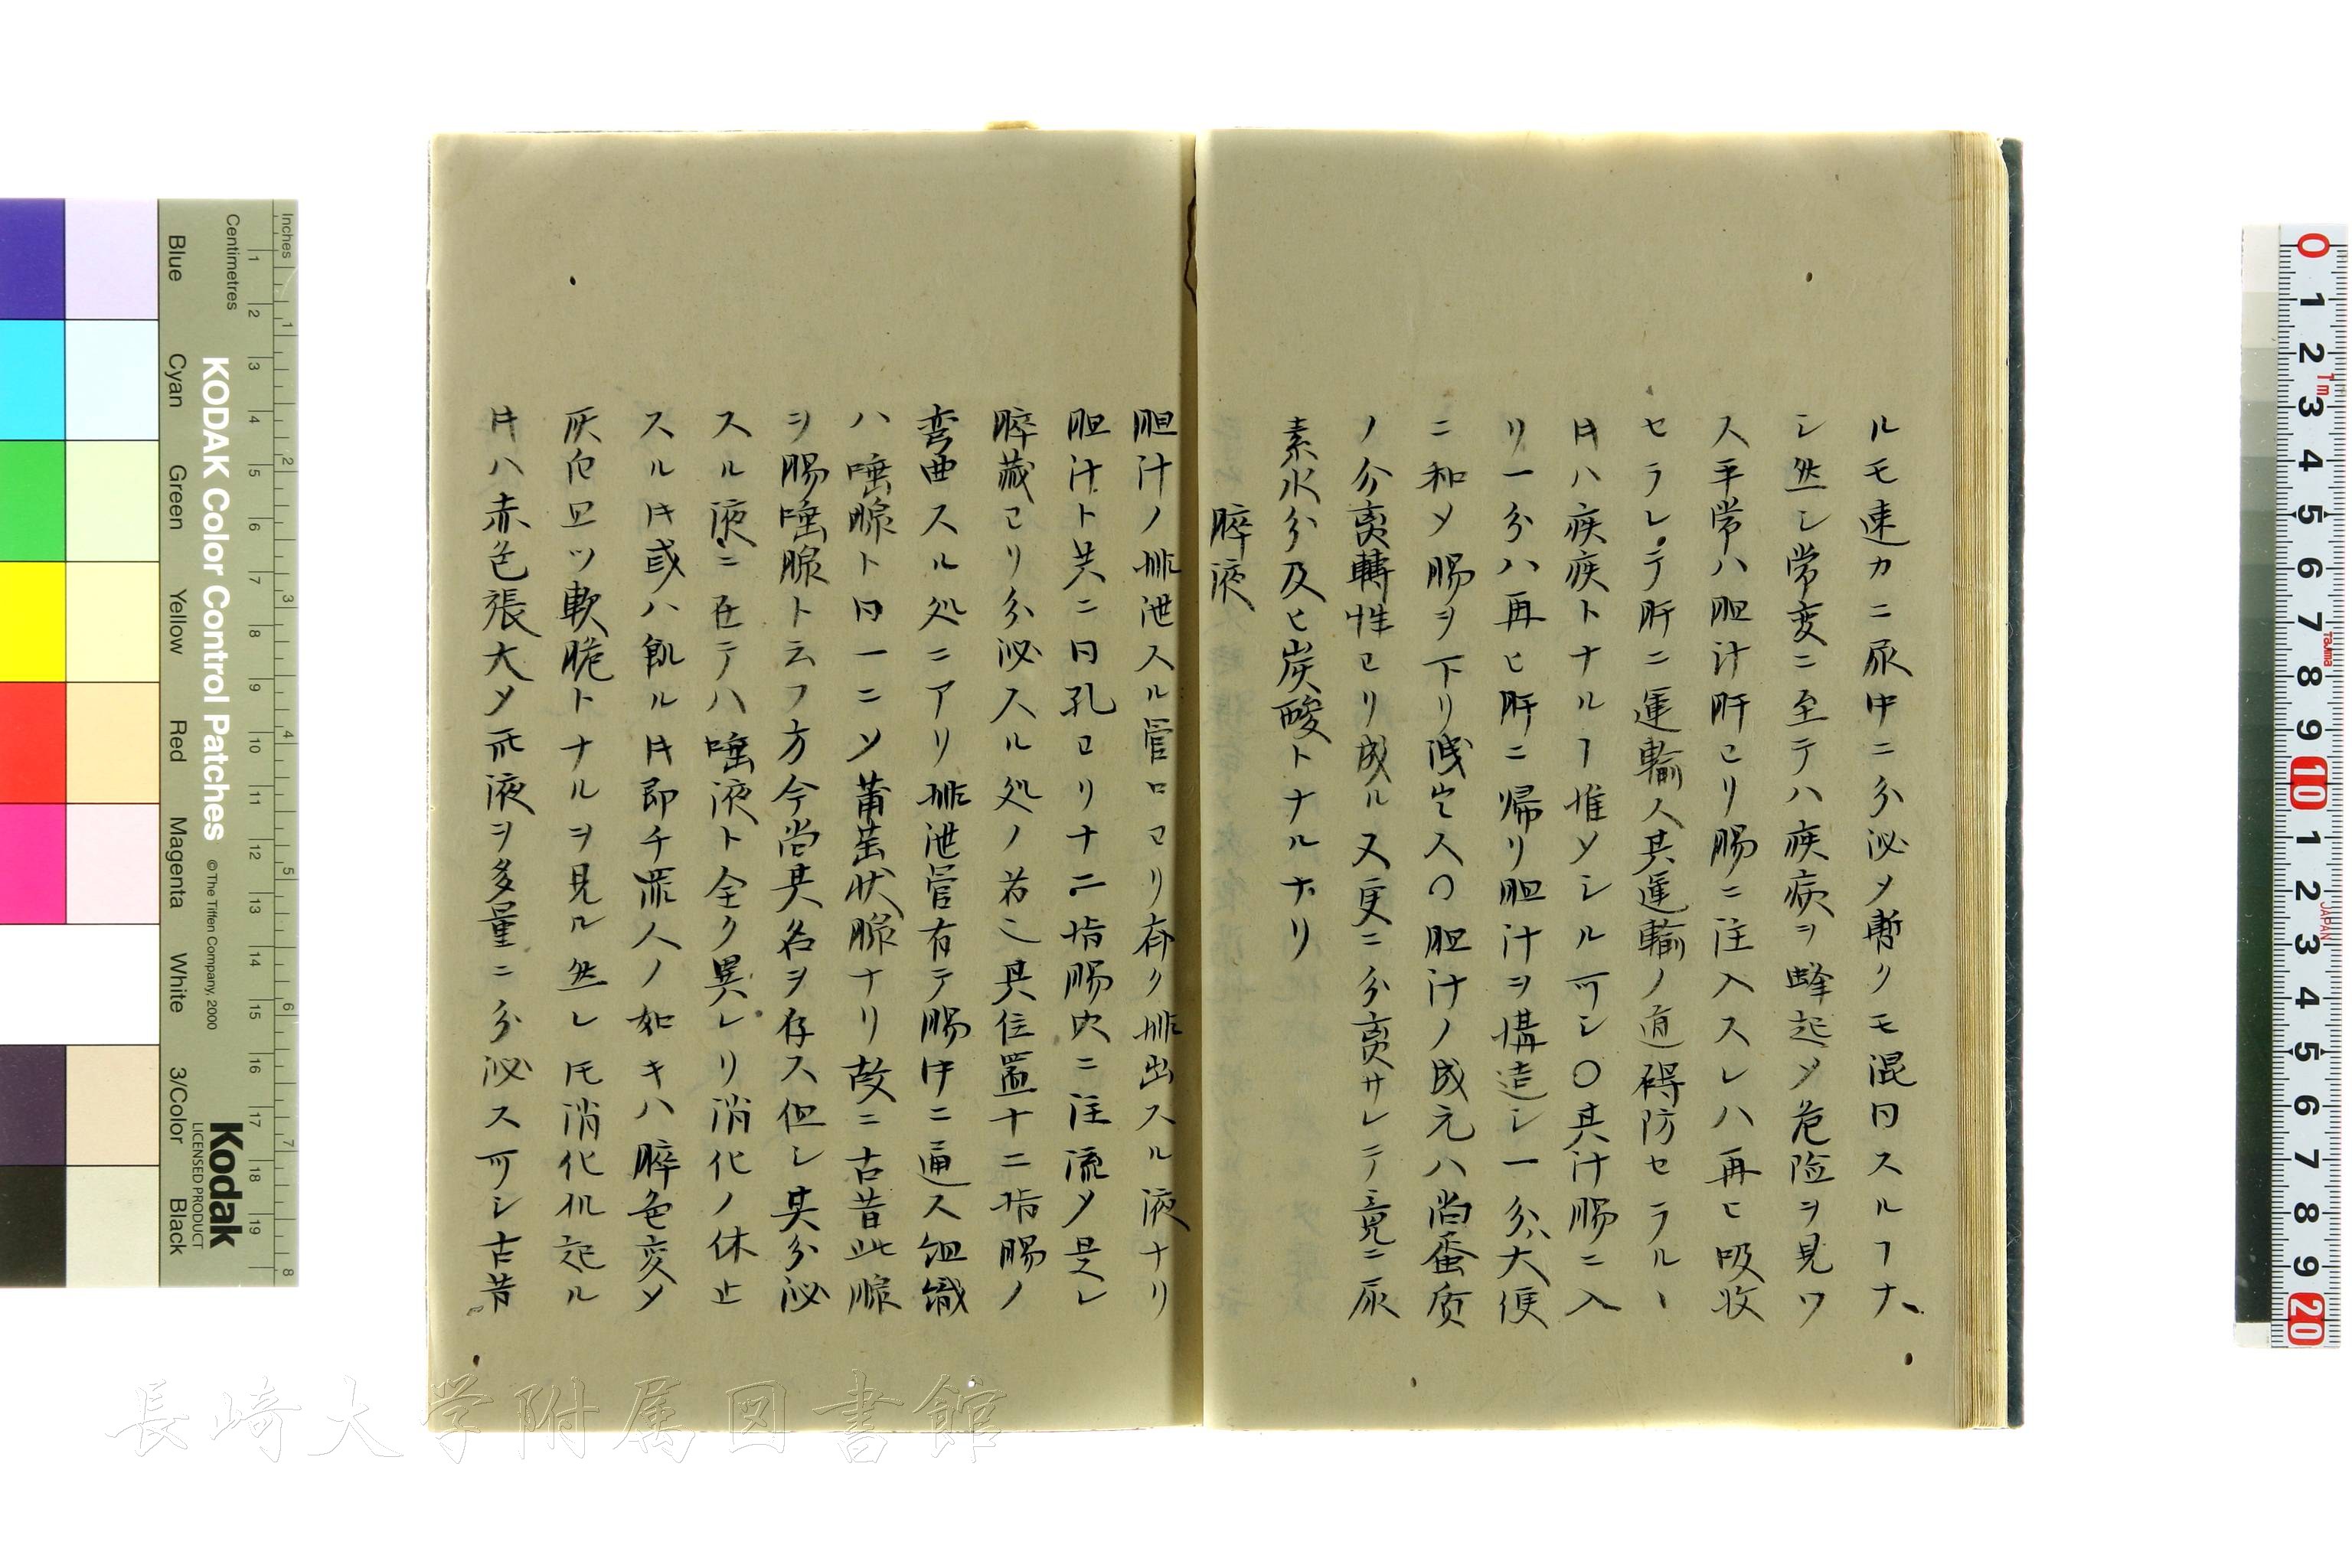 ルモ速カニ尿中ニ分泌メ暫クモ混同スルヿナ
シ然レ常変ニ至テハ疾病ヲ蜂起メ危険ヲ見ワ
ス平常ハ胆汁肝ヨリ膓ニ注入スレハ再ヒ吸收
セラレテ肝ニ運輸人其運輸ノ道碍防セラルヽ
𪜈ハ疾疾トナルヿ推メシル可シ〇其汁膓ニ入
リ一分ハ再ヒ肝ニ帰リ胆汁ヲ搆造シ一分ハ大便
ニ和メ膓ヲ下リ洩出ス〇胆汁ノ成元ハ尚蛋质
ノ分离轉性ヨリ成ル又更ニ分离サレテ竟ニ尿
素水分及ヒ炭酸トナルナリ
膵液
胆汁ノ排泄スル管口ヨリ存ク排出スル液ナリ
胆汁ト共ニ同孔ヨリ十二指膓内ニ注流メ是レ
膵藏ヨリ分泌スル処ノ者也其位置十二指膓ノ
弯曲スル処ニアリ排泄管有テ膓中ニ通ス組織
ハ唾腺ト同一ニソ葡萄状腺ナリ故ニ古昔此腺
ヲ膓唾腺ト云フ方今尚其名ヲ存ス但シ其分泌
スル液ニ在テハ唾液ト全ク異レリ消化ノ休止
スル𪜈或ハ飢ル𪜈即チ罪人ノ如キハ膵色変メ
灰白且ツ軟脆トナルヲ見ル然レ𪜈消化机起ル
𪜈ハ赤色張大メ而液ヲ多量ニ分泌ス可シ古昔
長崎大学附属図書館
KODAK Color Control Patches
© The Tiffen Company, 2000
Kodak
LICENSED PRODUCT
Inches
Centimetres
Blue Cyan Green Yellow Red Magenta White 3/Color Black
1 2 3 4 5 6 7 8 9 10 11 12 13 14 15 16 17 18 19
1 2 3 4 5 6 7 8
0 1 2 3 4 5 6 7 8 9 10 1 2 3 4 5 6 7 8 9 20
1m
Tajima
JAPAN